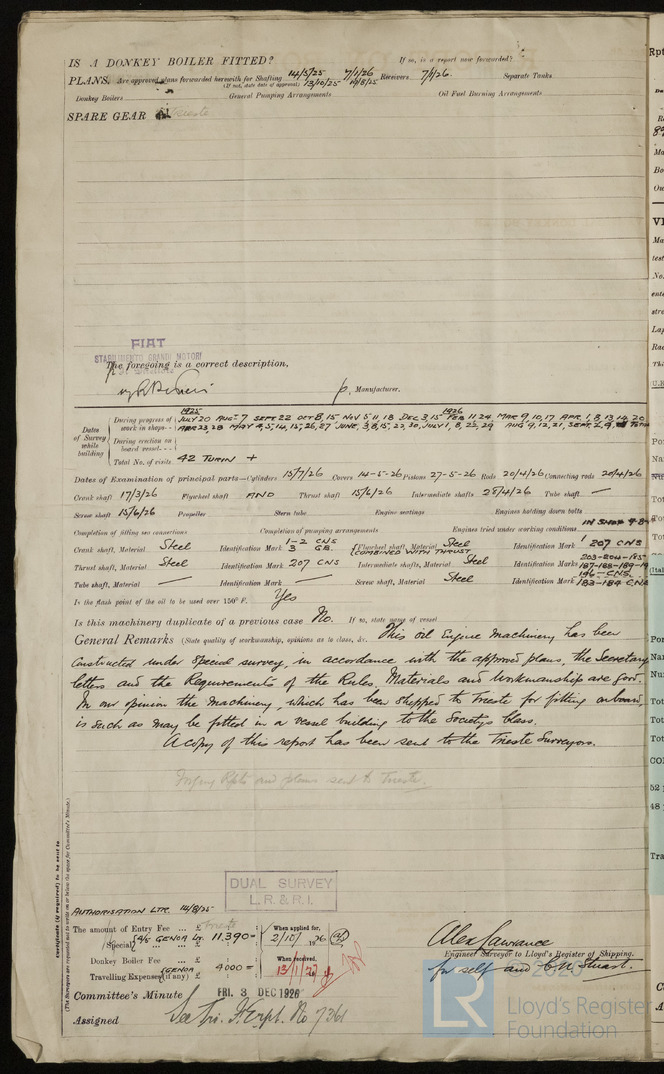 IS A DONKEY BOILER FITTED? If so, is a report now forwarded?
PLANS. Are approved plans forwarded herewith for Shafting 14/5/25 7/1/26 Receivers 7/1/26. Separate Tanks
(If not, state date of approval) 13/10/25 14/8/25
Donkey Boilers General Pumping Arrangements Oil Fuel Burning Arrangements
SPARE GEAR Trieste
FIAT
STABILIMENTO GRANDI MOTORI
The foregoing is a correct description,
p. Manufacturer.
1925 1926
Dates of Survey while building
During progress of work in shops - - JULY 20 AUG 7 SEPT 22 OCT 8, 15 NOV 5 11, 18 DEC 3, 15 FEB 11 24 MAR 9, 10, 17 APR 1, 8, 13, 14, 20
APR 23, 28 MAY 4, 5, 14, 15, 26, 27 JUNE 3, 8, 15, 22, 30, JULY 1, 8, 22, 29 AUG 9, 12, 21, SEPT 2, 9,
During erection on board vessel - - -
Total No. of visits 42 TURIN +
Dates of Examination of principal parts—Cylinders 15/7/26 Covers 14-5-26 Pistons 27-5-26 Rods 20/4/26 Connecting rods 20/4/26
Crank shaft 17/3/26 Flywheel shaft AND Thrust shaft 15/6/26 Intermediate shafts 28/4/26 Tube shaft —
Screw shaft 15/6/26 Propeller Stern tube Engine seatings Engines holding down bolts
Completion of fitting sea connections Completion of pumping arrangements Engines tried under working conditions IN SHOP 9-8-
Crank shaft, Material Steel Identification Mark 1-2 CNS 3 GB. Flywheel shaft, Material Steel Identification Mark 207 CNS
(COMBINED WITH THRUST
Thrust shaft, Material Steel Identification Mark 207 CNS Intermediate shafts, Material Steel Identification Marks 203-204-185-
187-188-189-19
196-CNS
Tube shaft, Material — Identification Mark — Screw shaft, Material Steel Identification Mark 183-184 CNS
Is the flash point of the oil to be used over 150° F. Yes
Is this machinery duplicate of a previous case No. If so, state name of vessel
General Remarks (State quality of workmanship, opinions as to class, &c. This oil Engine machinery has been
constructed under special survey, in accordance with the approved plans, the Secretary
letters and the Requirements of the Rules. Materials and workmanship are good.
In our opinion the machinery, which has been shipped to Trieste for fitting onboard,
is such as may be fitted in a vessel building to the Societys class.
A copy of this report has been sent to the Trieste Surveyors.
Forging Rpts and plans sent to Trieste.
Certificate (if required) to be sent to
(The Surveyors are requested not to write on or below the space for Committee's Minute.)
DUAL SURVEY
L. R. & R. I.
AUTHORISATION LTR. 14/8/25
The amount of Entry Fee ... £ Trieste : When applied for,
Special a/c GENOA Lr. 11.390= 2/10/1926
Donkey Boiler Fee ... £ : When received,
Travelling Expenses (if any) £ (GENOA 4000= 13/1/27
Alex Lawrance
Engineer Surveyor to Lloyd's Register of Shipping.
for self and C.N. Stuart.
Committee's Minute FRI. 3 DEC 1926
Assigned See Tri. F.E. rpt. No 7361
© 2020
LR
Lloyd's Register
Foundation